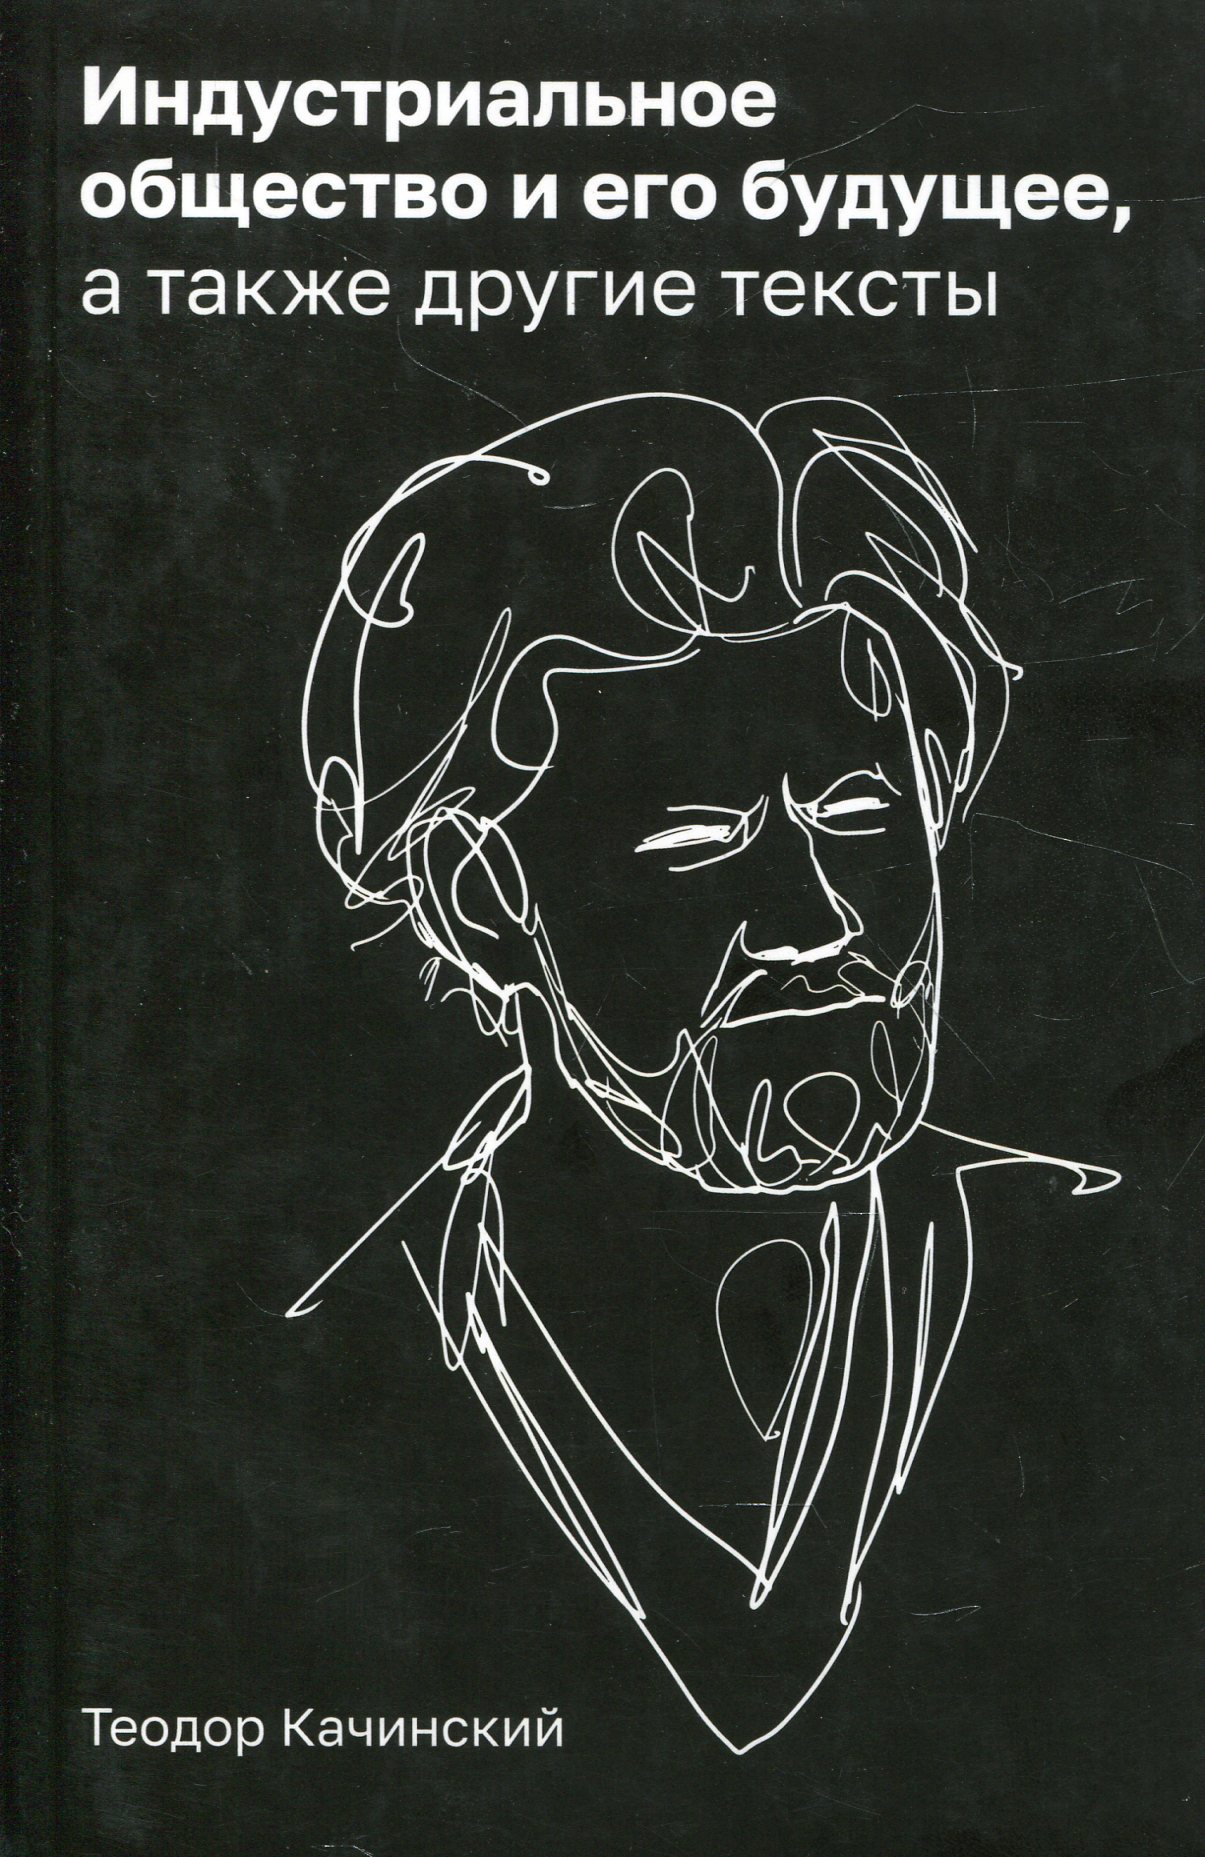 Индустриальное
общество и его будущее,
а также другие тексты
Теодор Качинский